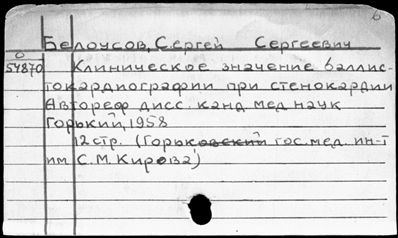 б
Белоусов, Сергей Сергеевич
О
54870 Клиническое значение баллис-
токардиографии при стенокардии
Автореф дисс. канд мед наук
Горький, 1958
12 стр. (Горьковский гос. мед. ин-т
им С.М. Кирова)